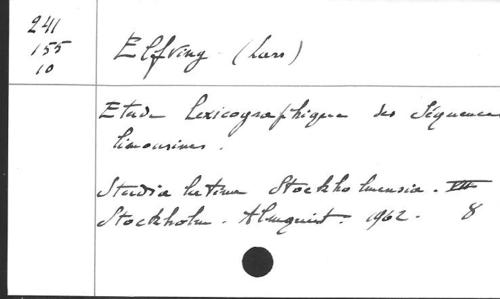 241
155
10
Elfving (Lars)
Etude lexicographique des Séquences
limousines.
Studia latina Stockholmensia. VII
Stockholm. Almquist. 1962. 8